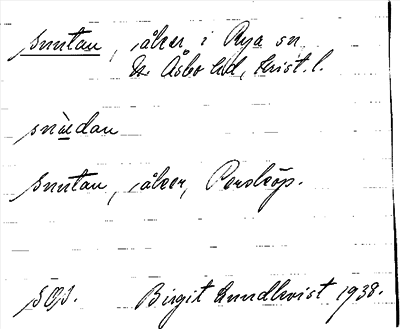 Snutan, åker i Rya sn
N. Åsbo hd, Krist. l.
snùdan
Snutan, åker, Perstorp.
SOI. Birgit Lundkvist 1938.